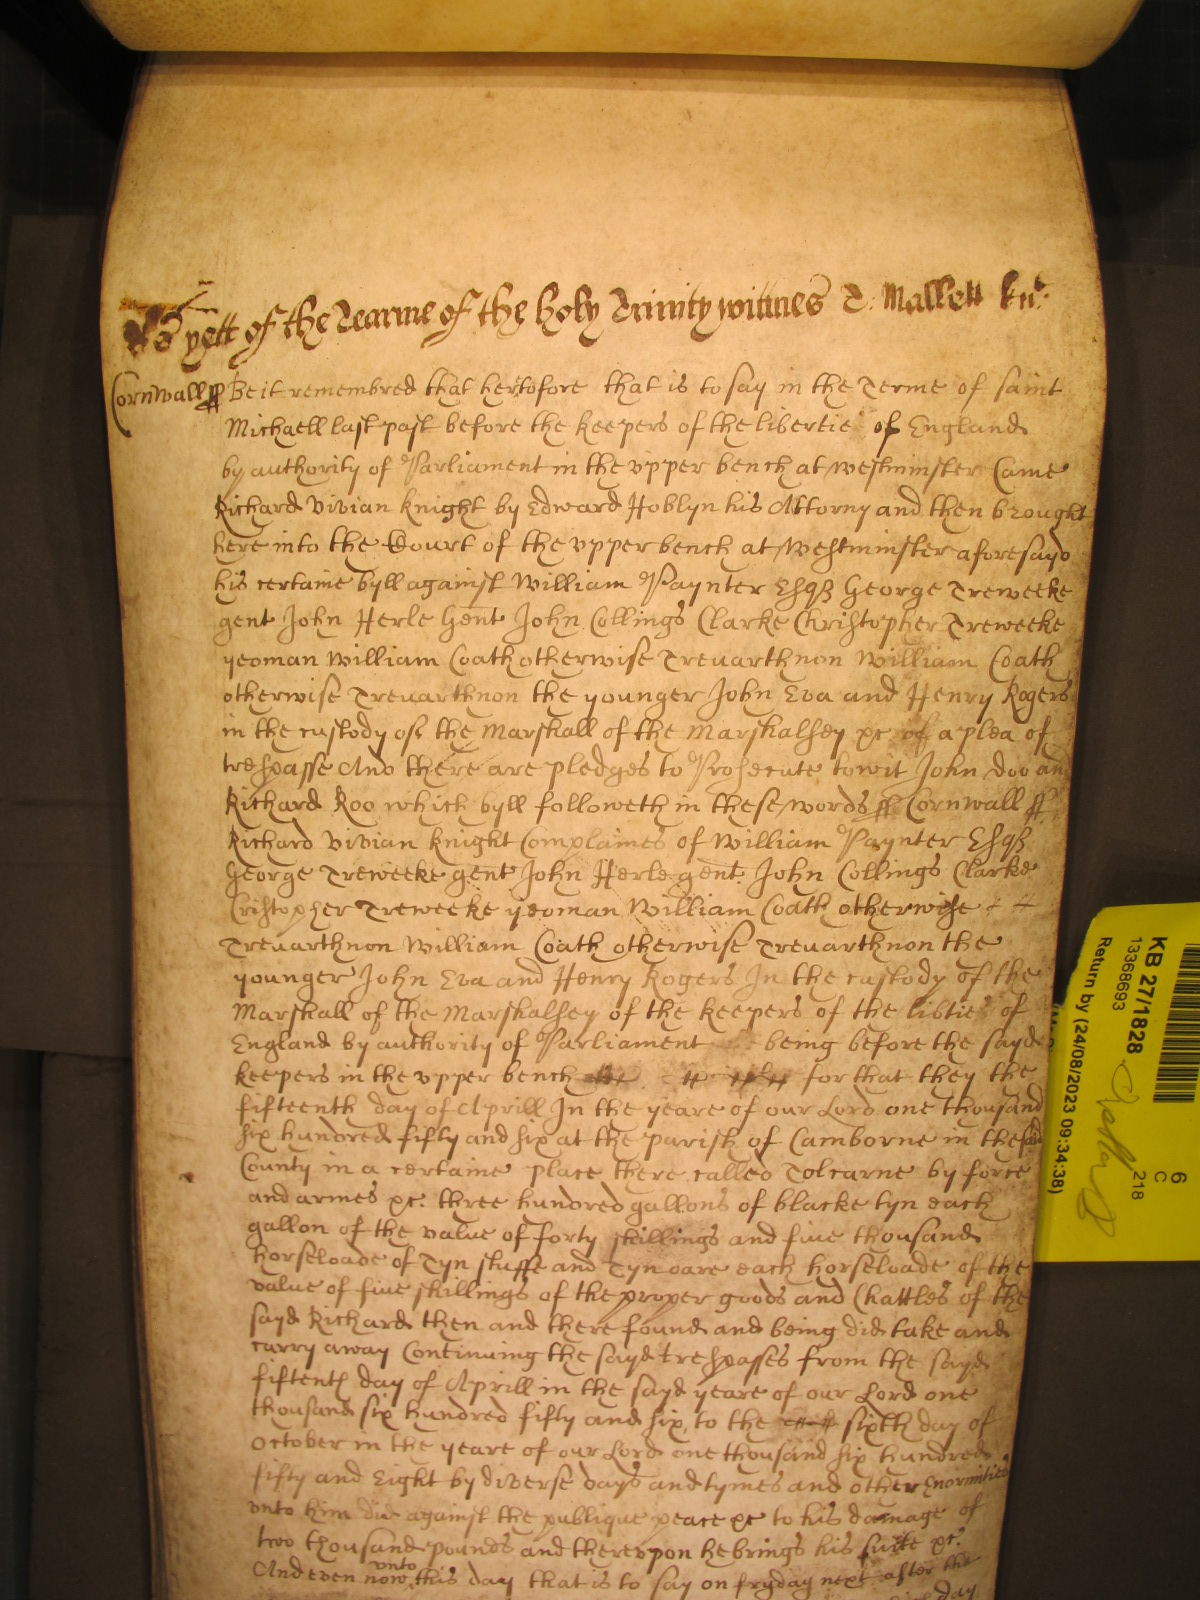 As yett of the Tearme of the holy Trinity wittnes T: Mallett knt:
Cornwall ss Be it remembred that hertofore that is to say in the Terme of saint
Michaell last past before the keepers of the libertie of England
by authority of Parliament in the vpper bench at westminster Came
Richard Vivian knight by Edward Hoblyn his Attorny and then brought
here into the Court of the vpper bench at Westminster aforesayd
his certaine byll against William Paynter Esqr George Treweeke
gent John Herle Gent John Collings Clarke Christopher Treweeke
yeoman William Coath otherwise Trevarthnon William Coath
otherwise Trevarthnon the younger John Eva and Henry Rogers
in the custody of the Marshall of the Marshalsey &c of a plea of
trespasse And there are pledges to Prosecute towit John doo and
Richard Roo which byll followeth in these words ss Cornwall ss
Richard Vivian knight Complaines of William Paynter Esqr
George Treweeke gent John Herle gent John Collings Clarke
Cristopher Treweeke yeoman William Coath otherwise
Trevarthnon William Coath otherwise Trevarthnon the
younger John Eva and Henry Rogers In the custody of the
Marshall of the Marshalsey of the keepers of the libties of
England by authority of Parliament being before the sayd
keepers in the vpper bench for that they the
fifteenth day of Aprill In the yeare of our Lord one thousand
six hundred fifty and six at the parish of Camborne in the said
County in a certaine place there called Tolcarne by force
and armes &c: three hundred gallons of blacke tyn each
gallon of the value of forty shillings and five thousand
horseloade of Tyn stuffe and Tyn oare each horseloade of the
value of five shillings of the proper goods and Chattles of the
sayd Richard then and there found and being did take and
carry away Continuing the sayd trespasses from the sayd
fifteenth day of Aprill in the sayd yeare of our Lord one
thousand six hundred fifty and six to the sixth day of
October in the yeare of our Lord one thousand six hundred
fifty and Eight by diverse days and tymes and other Enormities
vnto him did against the publique peace &c to his damage of
two thousand pounds and therevpon he brings his suite &c:
And even now vnto this day that is to say on fryday next after the
day
KB 27/1828
13368693
Return by (24/08/2023 09:34:38)
6
C
218